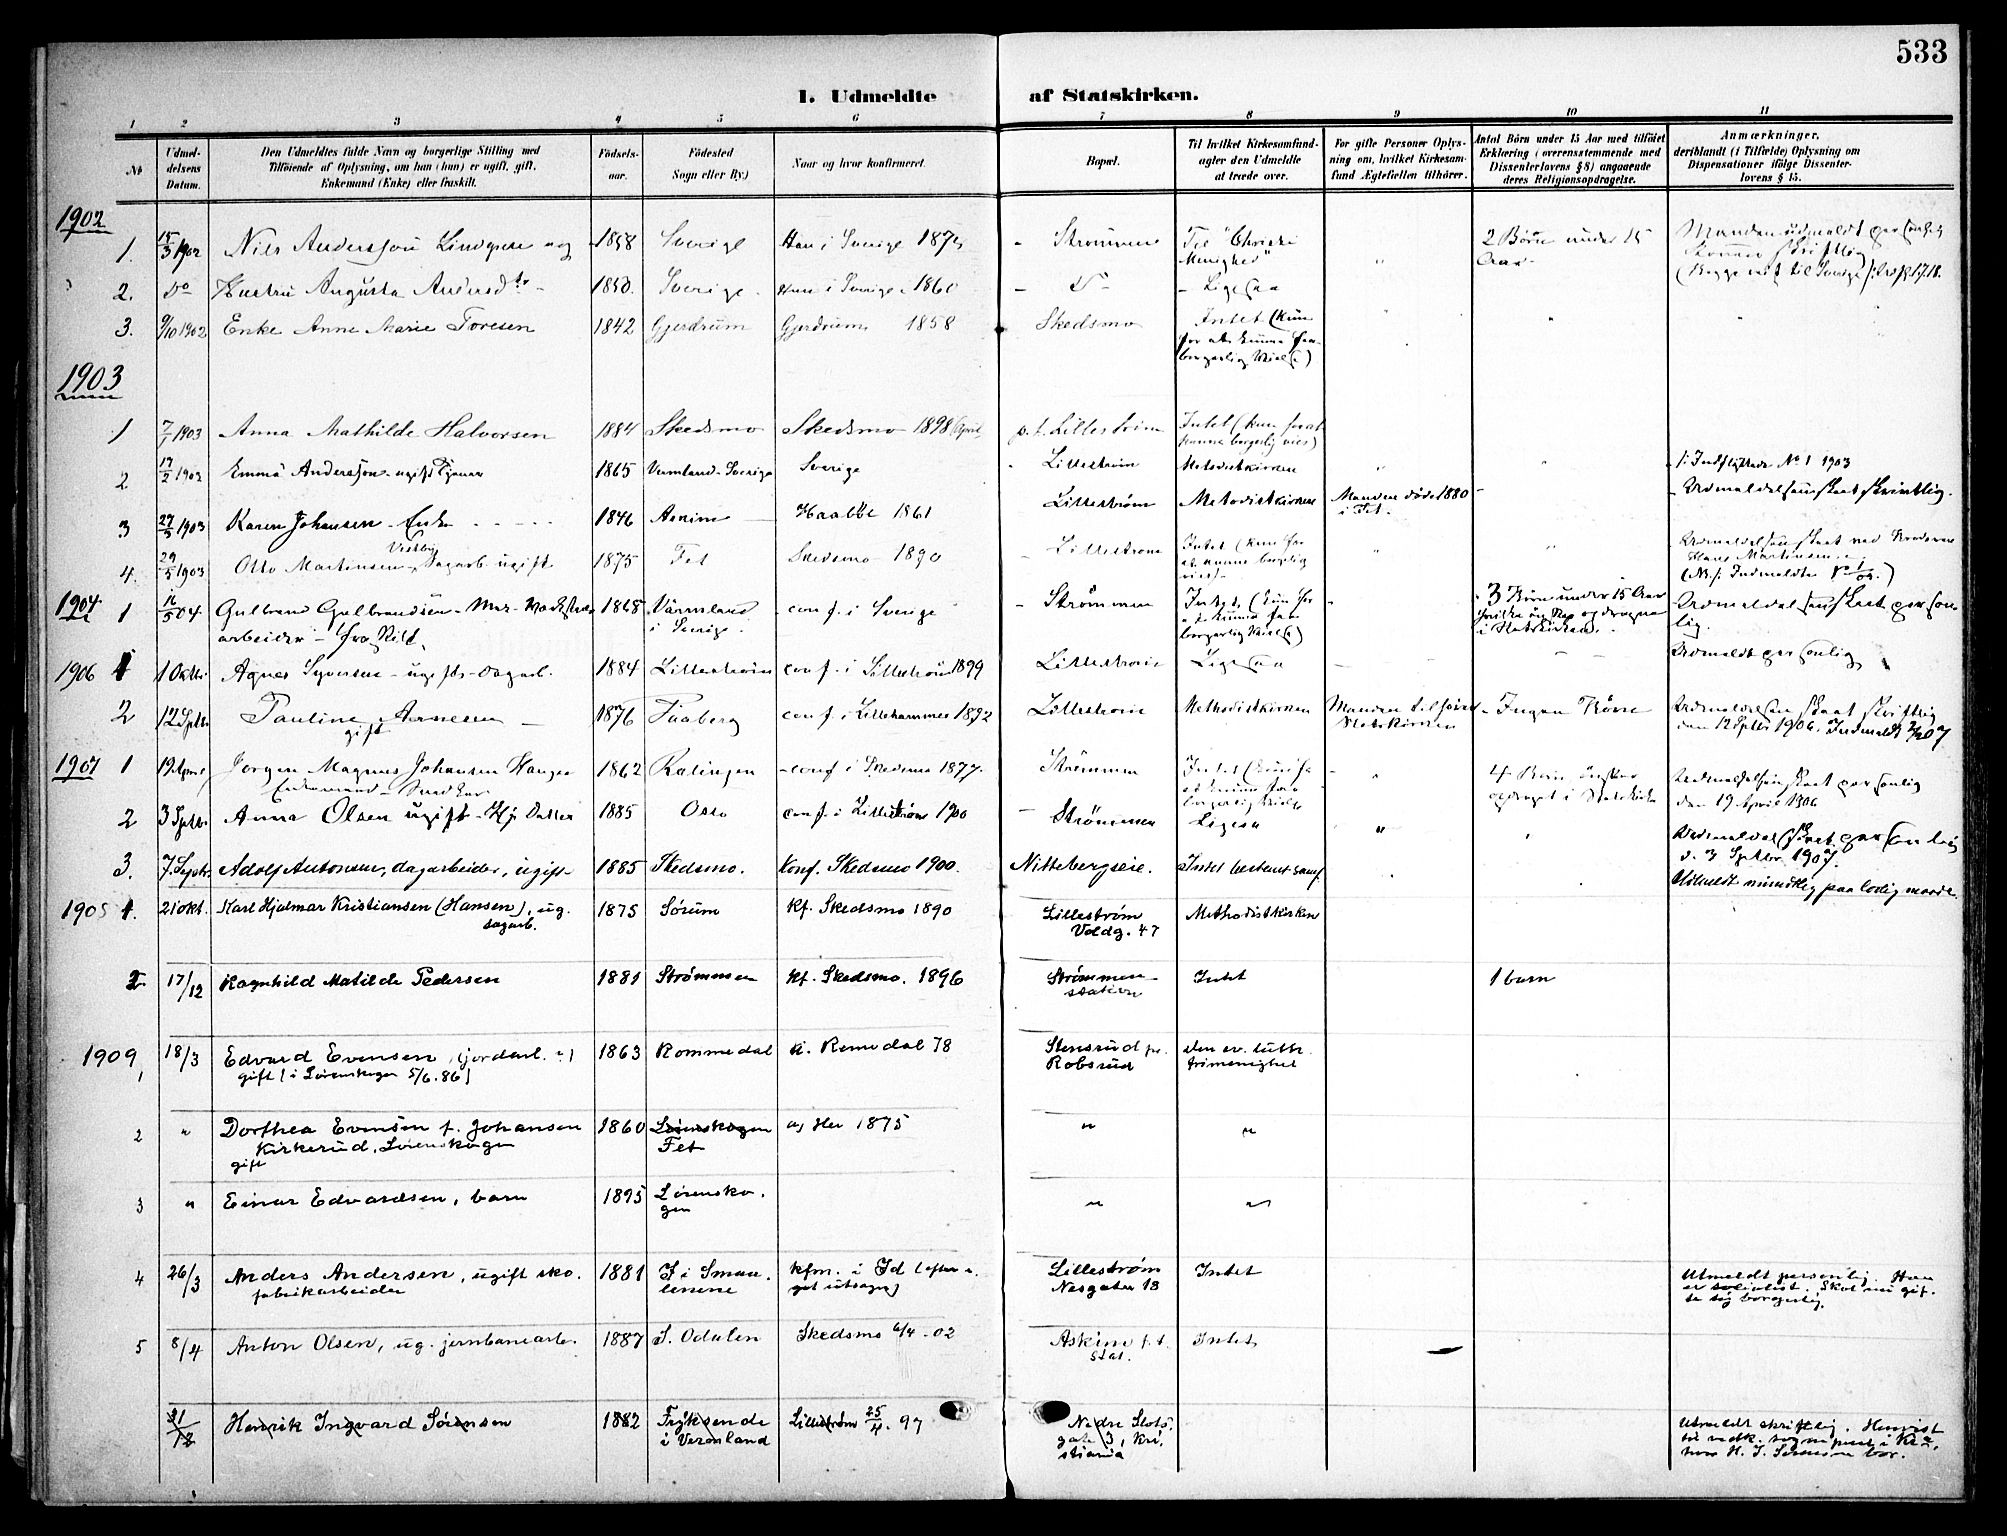 533
1. Udmeldte af Statskirken.
1 2 3 4 5 6 7 8 9 10 11
№
Udmel-
delsens
Datum.
Den Udmeldtes fulde Navn og borgerlige Stilling med
Tilføiende af Oplysning, om han (hun) er ugift, gift,
Enkemand (Enke) eller fraskilt.
Fødsels-
aar.
Fødested
Sogn eller By.)
Naar og hvor konfirmeret.
Bopæl.
Til hvilket Kirkesamfund
agter den Udmeldte
at træde over.
For gifte Personer Oplys-
ning om, hvilket Kirkesam-
fund Ægtefællen tilhører.
Antal Børn under 15 Aar med tilføiet
Erklæring (overensstemmende med
Dissenterlovens § 8) angaaende
deres Religionsopdragelse.
Anmærkninger,
deriblandt (i Tilfælde) Oplysning om
Dispensationer ifølge Dissenter-
lovens § 15.
1902
1. 15/3 1902 Nils Andersson Lindquist og 1858 Sverige Han i Sverige Strømmen Til "Christi 2 Børn under 15
Menighed" Aar
2. Do Hustru Augusta Andersdtr Sverige Hun i Sverige 1860 Do Ligesaa
3. 9/10 1902 Enke Anne Marie Toresen 1842 Gjerdrum Gjerdrum 1858 Skedsmo Intet (kun
for at kunne faa
borgerlig Vielse)
1903
1 7/1 1903 Anna Mathilde Halvorsen 1884 Skedsmo Skedsmo 1898 (April) p.t. Lillestrøm Intet (kun for at
kunne borgerlig vies)
2 Emma Andersson ugift Tjener 1865 Vermland Sverige Sverige Lillestrøm Metodistkirken Indflyttede No 1 1903
3 27/5 1903 Karen Johansen Enke 1846 Askim 1861 Lillestrøm Metodistkirken Manden døde 1880 Udmeldelsen skeet skriftlig.
i Fet.
4. 29/5 1903 Otto Martinsen Sagarb. ugift 1875 Fet Skedsmo 1890 Lillestrøm Intet (kun for
at kunne borgerlig
vies)
Udmeldelsen skeet ved Broderen
Hans Martinsen.
1904 1 16/5 04 Gulbrand Gulbrandsen 1868 Värmland conf. i Sverige Strömmen Intet (kun for 3 Børn under 15 Aar Udmeldelsen skeet person-
arbeider - fraskilt. i Sverige. at kunne faa
borgerlig Vielse) i Statskirken. lig.
1906 1 1 Oktbr. Agnes Syversen ugift - Dagarb. 1884 Lillestrøm conf. i Lillestrøm 1899 Lillestrøm Ligesaa Udmeldt personlig
2 12 Septbr. Pauline Arnesen 1876 Faaberg conf. i Lillehammer 1892 Lillestrøm Methodistkirken Manden tilhører Ingen Børn Udmeldelsen skeet skriftlig
gift Statskirken den 12 Septbr 1906.
1907 1 19 April Jørgen Magnus Johansen Hauger 1862 Rælingen conf i Skedsmo 1877. Strömmen Intet (kun for 4 Børn ønskes Udmeldelsen skeet personlig
Enkemand at kunne faa opdraget i Statskirken den 19 April 1906
borgerlig Vielse
2 3 Septbr. Anna Olsen ugift - Hj. Datter 1885 Oslo conf. i Lillestrøm 1900 Strömmen Ligesaa Udmeldelse skeet personlig
d. 3 Septbr. 1907.
3. 7. Septbr. Adolf Antonsen, dagarbeider, ugift 1885 Skedsmo. Konf. Skedsmo 1900. Nittebergseie. Intet bestemt samf. Udmeldt mundtlig paa lovlig maade.
1908 1. 21 okt. Karl Hjalmar Kristiansen (Hansen), ug. 1875 Sørum Kf. Skedsmo 1890 Lillestrøm Methodistkirken
dagarb. Voldg. 47
2 17/12 Ragnhild Matilde Pedersen 1881 Strømmen Kf. Skedsmo. 1896 Strømmen Intet 1 barn
station
1909 1 18/3 Edvard Evensen, (jordarb.) 1863 Rommedal K. Romedal 78 Stensrud pr. den ev. luth.
gift (i Lørenskogen 5/6. 86) Robsrud frimenighet
2 " Dorthea Evensen f. Johansen 1860 Lørenskogen 1875 " "
Kirkerud, Lørenskogen Fet
gift
3 " Einar Edvardsen, barn 1895 Lørensko- " "
gen
4 26/3 Anders Andersen, ugift sko- 1881 Id i Smaa- kfm. i Id (efter e- Lillestrøm Intet Utmeldt personlig. Han
fabrikarbeider lenene get utsagn) Nesgaten 18 er socialist. Skal nu gif-
te sig borgerlig.
5 8/4 Anton Olsen, ug. jernbanearb. 1887 S. Odalen Skedsmo 6/4 - 02 Askim p.t. Intet
Stat.
31/12 Henrik Ingvard Sørensen 1882 Fryksende Lillestrøm 25/4. 97 Nedre Slots- Utmeldt skriftlig. Henvist
i Vermland gate 3, Kri- til vedk. sogneprest i Kr.a,
stiania hvor H. I. Sørensen bor.